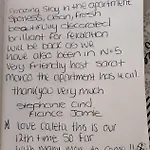 Amazing stay in the apartment
spotless, clean, fresh
beautifully decorated
brilliant for relaxation
will be back as we
have also been in N=5
very friendly host Sarat
Marco the apartment has it all
thankyou very much
Stephanie and
fiance Jamie
* love Caleta this is our
12th time so far